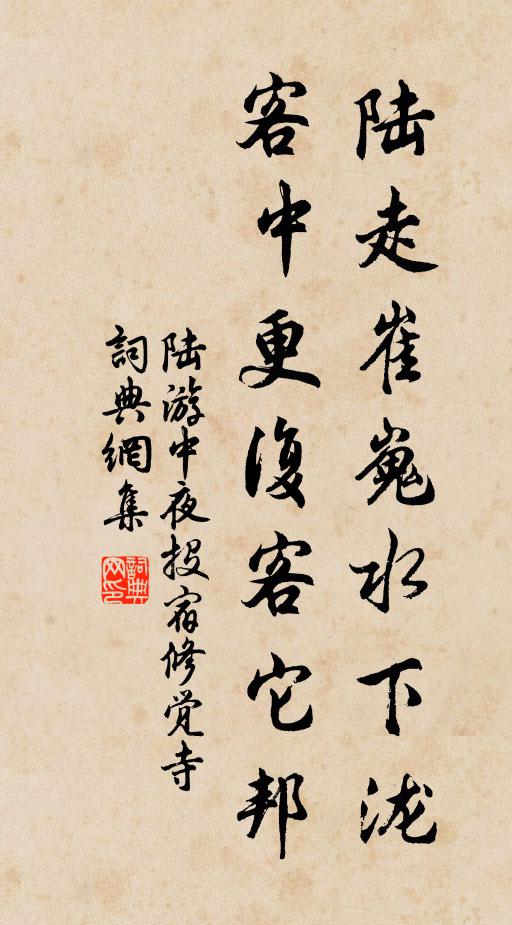 陆走崔嵬水下泷
客中更復客它邦
陆游中夜投宿修觉寺
詞典網集
詞典网印